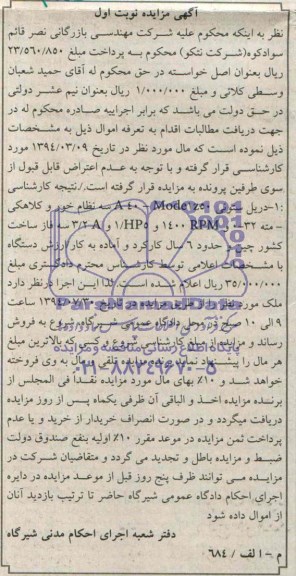 آگهی مزایده نوبت اول
نظر به اینکه محکوم علیه شرکت مهندسی بازرگانی نصر قائم
سوادکوه(شرکت نتکو) محکوم به پرداخت مبلغ ۲۳/۵۶۰/۸۵۰
ریال بعنوان اصل خواسته در حق محکوم له آقای حمید شعبان
وسطی کلائی و مبلغ ۱/۰۰۰/۰۰۰ ریال بعنوان نیم عشر دولتی
در حق دولت می باشد که برابر اجراییه صادره محکوم له در
جهت دریافت مطالبات اقدام به تعرفه اموال ذیل به مشخصات
ذیل نموده است که مال مورد نظر در تاریخ ۱۳۹۴/۰۳/۰۹ مورد
کارشناسی قرار گرفته و با توجه به عدم اعتراض قابل قبول از
سوی طرفین پرونده به مزایده قرار گرفته است./نتیجه کارشناسی
:۱-دریل A۴۰ سه نظام خور و کلاهکی
مته ۳۲ ۱۴۰۰ RPM و ۱/HP۵ و ۳/۲A سه فاز ساخت
کشور حدود ۶ سال کارکرد و آماده به کار ارزش دستگاه
با مشخصات اعلامی توسط کارشناس محترم دادگستری مبلغ
۳۵/۰۰۰/۰۰۰ ریال اعلام شده است لذا این اجرا درنظر دارد
ملک مورد نظر را از طریق مزایده در تاریخ ۱۳۹۴/۰۷/۲۰ ساعت
۹ الی ۱۰ صبح در محل دادگاه عمومی شیرگاه بفروش
رساند و مزایده از مبلغ کارشناسی شروع و کسی که بالاترین مبلغ
هر مال را پیشنهاد نماید برنده مزایده تلقی و مال به وی فروخته
خواهد شد و ۱۰٪ بهای مال مورد مزایده نقدا فی المجلس از
برنده مزایده اخذ و الباقی آن ظرفی یکماه پس از روز مزایده
دریافت میگردد و در صورت انصراف خریدار از خرید و یا عدم
پرداخت ثمن مزایده در موعد مقرر ۱۰٪ اولیه بنفع صندوق دولت
ضبط و مزایده باطل و تجدید می گردد و متقاضیان شرکت در
مزایده می توانند ظرف پنج روز قبل از موعد مزایده در دایره
اجرای احکام دادگاه عمومی شیرگاه حاضر تا ترتیب بازدید آنان
از اموال داده شود
دفتر شعبه اجرای احکام مدنی شیرگاه
م - الف / ۶۸۴
پایگاه اطلاع رسانی مناقصه و مزایده
۰۲۱-۸۸۳۴۹۶۷۰-۵